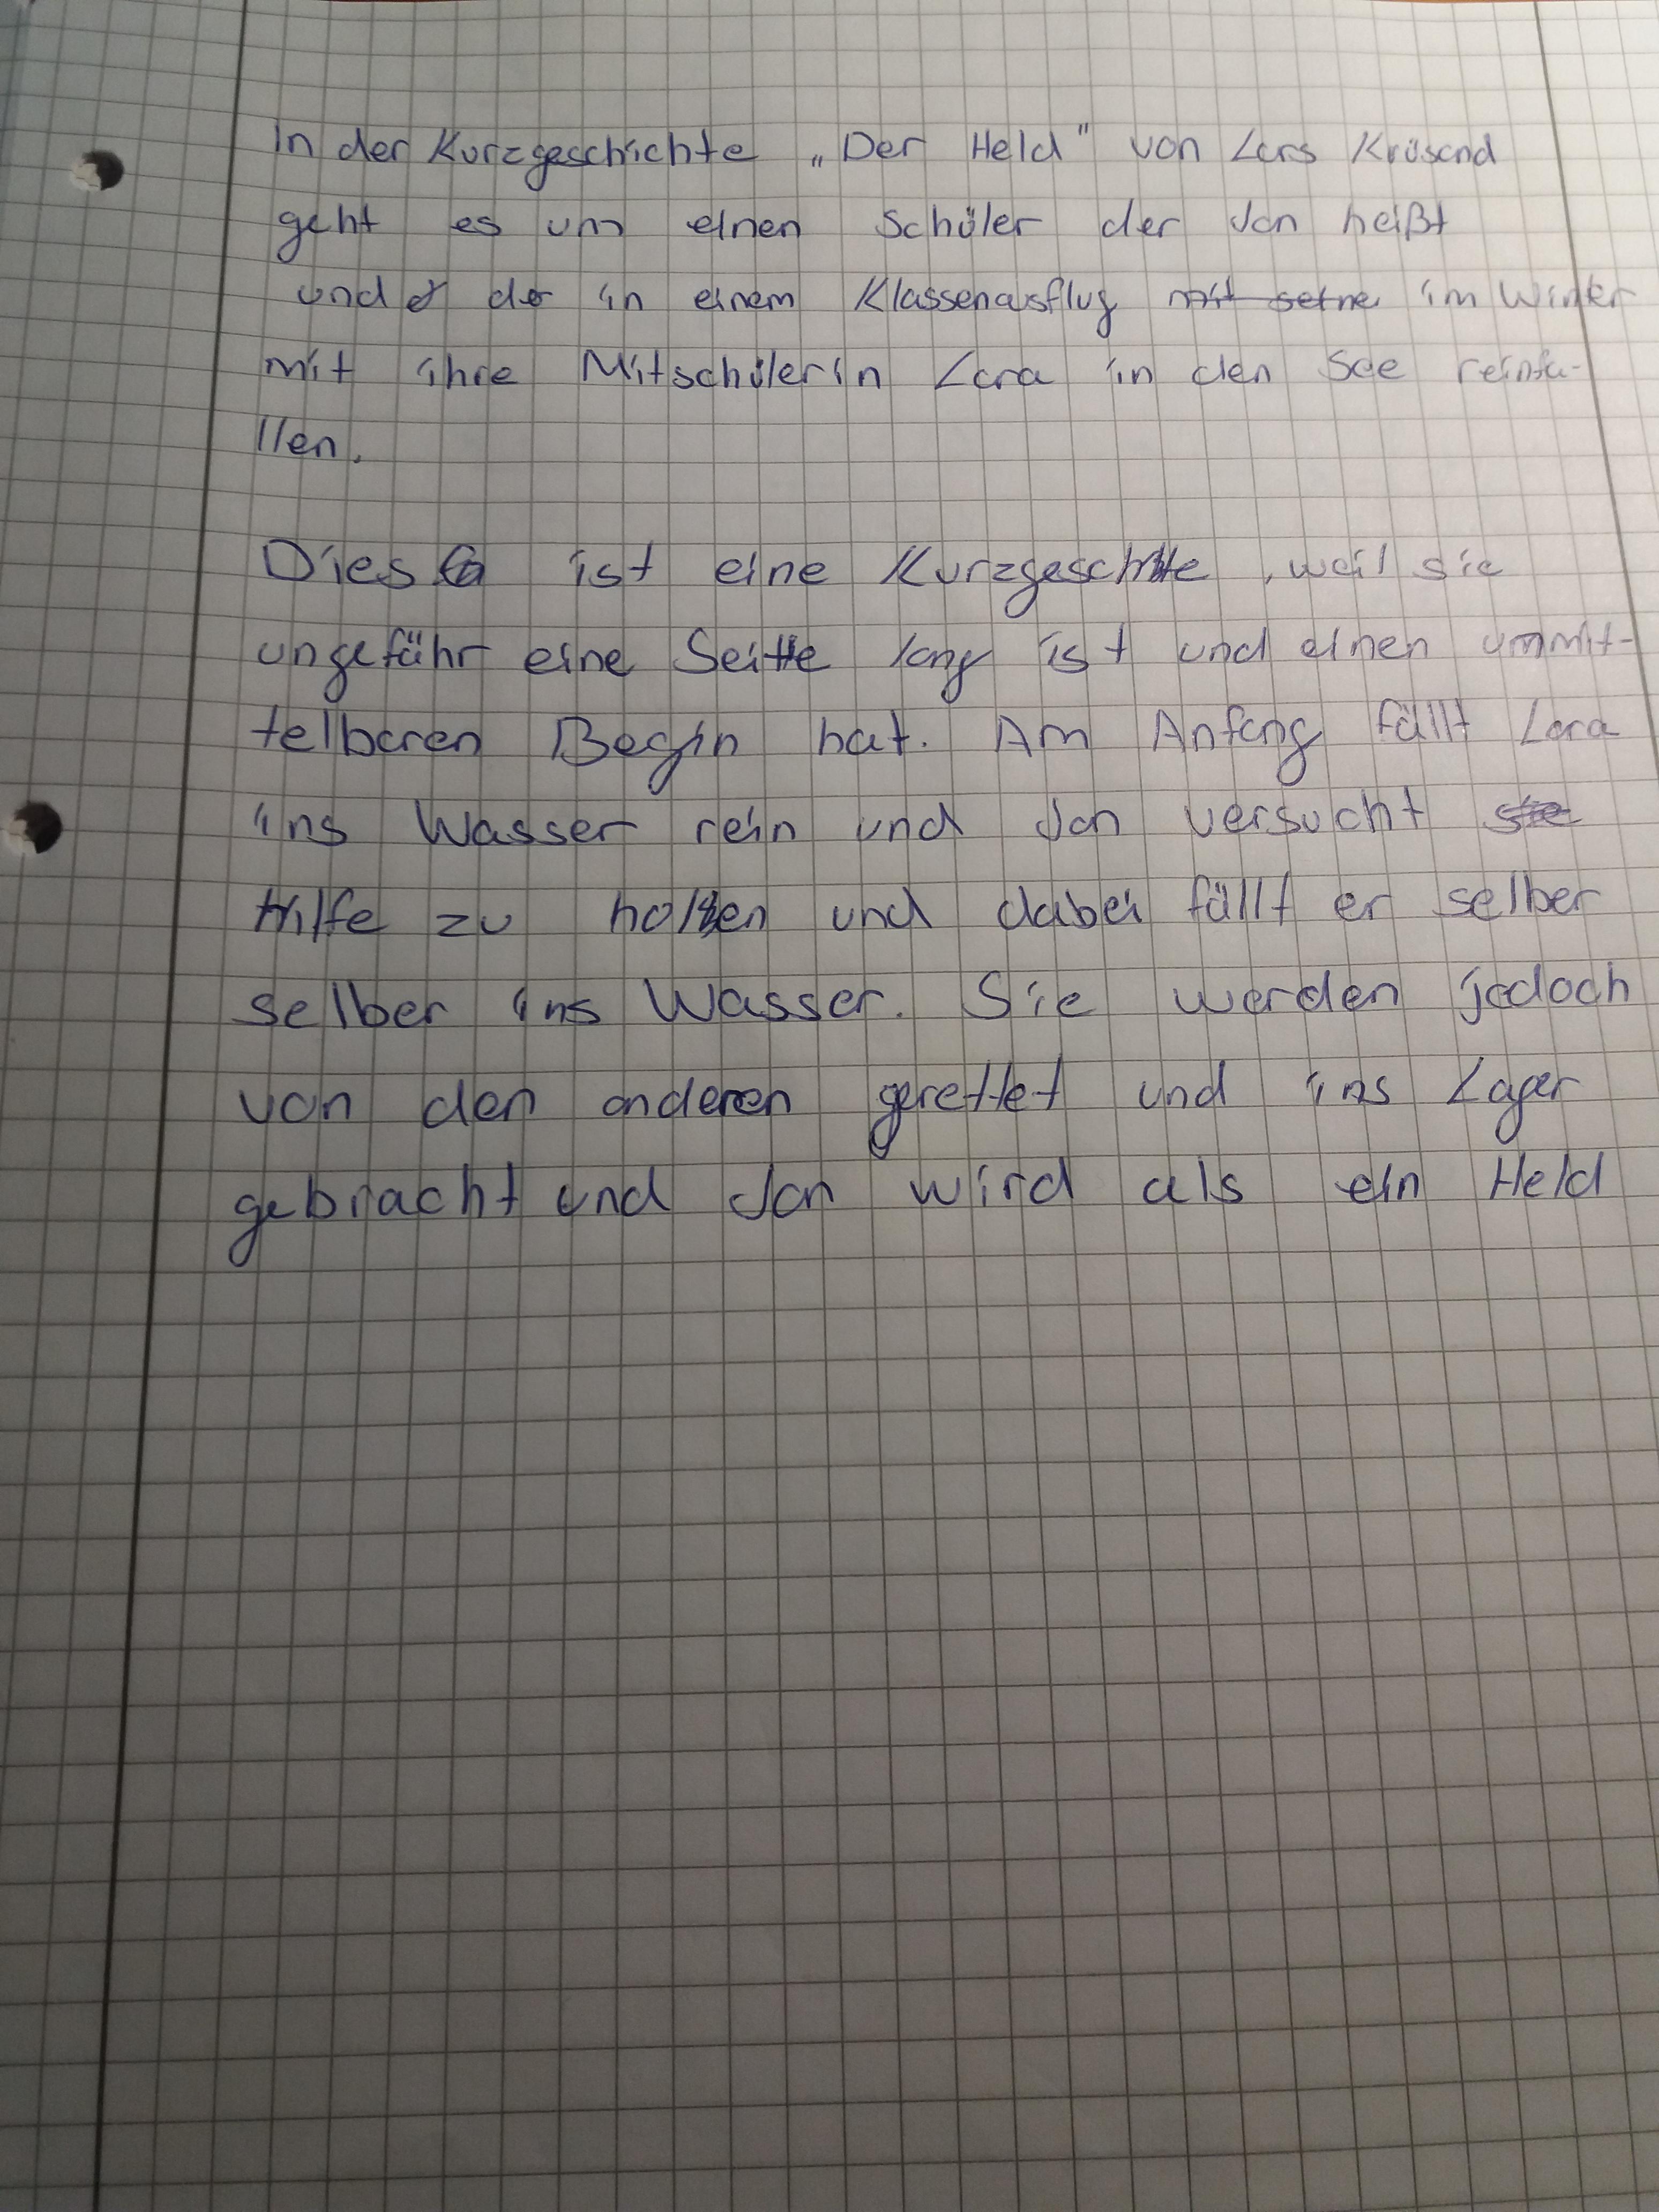 In der Kurzgeschichte „Der Held" von Lars Krüsand
geht es um einen Schüler der Jan heißt
und der in einem Klassenausflug im Winter
mit ihre Mitschülerin Lara in den See reinfa-
llen.
Dies ist eine Kurzgeschichte, weil sie
ungefähr eine Seite lang ist und einen unmit-
telbaren Begin hat. Am Anfang fällt Lara
ins Wasser rein und Jan versucht
Hilfe zu holen und dabei fällt er selber
selber ins Wasser. Sie werden jedoch
von den anderen gerettet und ins Lager
gebracht und Jan wird als ein Held